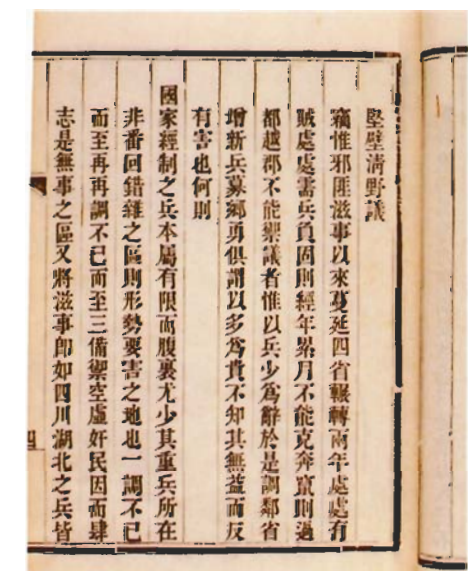 堅壁清野議
竊惟邪匪滋事以來蔓延四省輾轉兩年處處有
賊處處需兵負固則經年累月不能克奔竄則過
都越郡不能禦議者惟以兵少爲辭於是調鄰省
增新兵募鄉勇俱謂以多爲貴不知其無益而反
有害也何則
國家經制之兵本屬有限而腹裏尤少其重兵所在
非番回錯雜之區則形勢要害之地也一調不已
而至再再調不已而至三備禦空虛奸民因而肆
志是無事之區又將滋事卽如四川湖北之兵皆
四